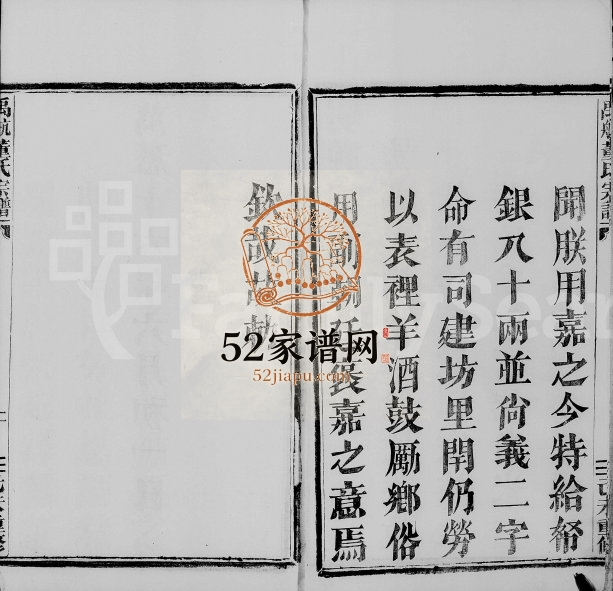 聞朕用嘉之今特給帑
銀八十兩並尙義二字
命有司建坊里閈仍勞
以表裡羊酒鼓勵鄉俗
用副朝廷褒嘉之意焉
欽哉故勅
禹航董氏宗譜
52家谱网
52jiapu.com